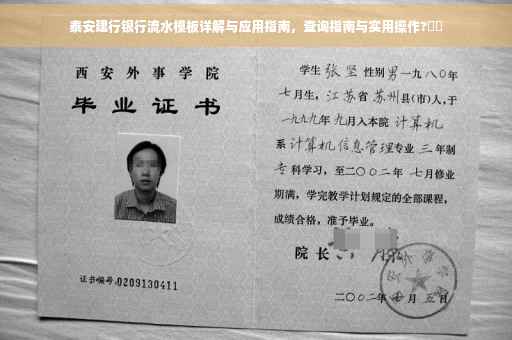 泰安建行银行流水模板详解与应用指南，查询指南与实用操作?
西安外事学院
毕业证书
证书编号:0209130411
学生 张坚 性别 男 一九八〇年
七月生，江苏省 苏州县(市)人,于
一九九九年 九月入本院 计算机
系 计算机信息管理专业 三年制
专科学习，至二〇〇二年 七月修业
期满，学完教学计划规定的全部课程，
成绩合格，准予毕业。
院长
二〇〇二年 月五日